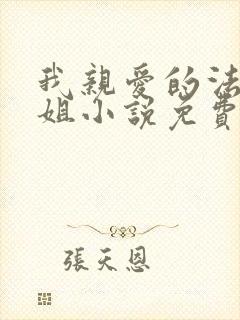 我親愛的法
姐小說免費
張天恩